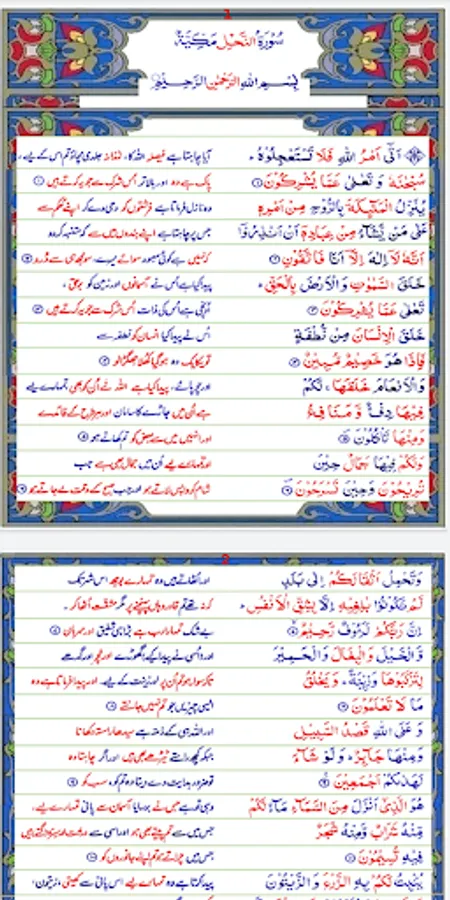 1
سُوْرَةُ النَّحْلِ مَكِّيَّةٌ
بِسْمِ اللهِ الرَّحْمٰنِ الرَّحِيْمِ
اَتٰۤى اَمْرُ اللهِ فَلَا تَسْتَعْجِلُوْهُ ؕ آیا چاہتا ہے فیصلہ اللہ کا، لہٰذا نہ جلدی مچاؤ تم اس کے لیے،
سُبْحٰنَهٗ وَ تَعٰلٰى عَمَّا يُشْرِكُوْنَ ① پاک ہے وہ اور بالاتر اُس شرک سے جو یہ کرتے ہیں ①
يُنَزِّلُ الْمَلٰٓئِكَةَ بِالرُّوْحِ مِنْ اَمْرِهٖ وہ نازل فرماتا ہے فرشتوں کو وحی دے کر اپنے حکم سے
عَلٰى مَنْ يَّشَآءُ مِنْ عِبَادِهٖۤ اَنْ اَنْذِرُوْۤا جس پر چاہتا ہے اپنے بندوں میں سے کہ متنبہ کر دو
اَنَّهٗ لَاۤ اِلٰهَ اِلَّاۤ اَنَا فَاتَّقُوْنِ ② کہ نہیں ہے کوئی معبود سوائے میرے، سو مجھ ہی سے ڈرو ②
خَلَقَ السَّمٰوٰتِ وَ الْاَرْضَ بِالْحَقِّ ؕ پیدا کیا ہے اُس نے آسمانوں اور زمین کو برحق،
تَعٰلٰى عَمَّا يُشْرِكُوْنَ ③ اُونچی ہے اُس کی ذات اُس شرک سے جو یہ کرتے ہیں ③
خَلَقَ الْاِنْسَانَ مِنْ نُّطْفَةٍ اُس نے پیدا کیا انسان کو نطفہ سے
فَاِذَا هُوَ خَصِيْمٌ مُّبِيْنٌ ④ تو یکایک وہ ہو گیا کھلا جھگڑالو ④
وَ الْاَنْعَامَ خَلَقَهَا ۚ لَكُمْ اور چوپائے، پیدا کیا ہے اللہ نے اُن کو بھی، تمہارے لیے
فِيْهَا دِفْءٌ وَّ مَنَافِعُ ہے اُن میں جاڑے کا سامان اور ہر طرح کے فائدے
وَ مِنْهَا تَاْكُلُوْنَ ⑤ اور انہیں میں سے بعض کو تم کھاتے ہو ⑤
وَ لَكُمْ فِيْهَا جَمَالٌ حِيْنَ اور تمہارے لیے اُن میں جمال بھی ہے جب
تُرِيْحُوْنَ وَ حِيْنَ تَسْرَحُوْنَ ⑥ شام کو واپس لاتے ہو اور جب صبح کے وقت لے جاتے ہو ⑥
2
وَ تَحْمِلُ اَثْقَالَكُمْ اِلٰى بَلَدٍ اور اُٹھاتے ہیں وہ تمہارے بوجھ اس شہر تک
لَّمْ تَكُوْنُوْا بٰلِغِيْهِ اِلَّا بِشِقِّ الْاَنْفُسِ ؕ کہ نہ تھے تم قادر وہاں پہنچنے پر مگر مشقت اُٹھا کر۔
اِنَّ رَبَّكُمْ لَرَءُوْفٌ رَّحِيْمٌ ⑦ بے شک تمہارا رب ہے بڑا ہی شفیق اور مہربان ⑦
وَّ الْخَيْلَ وَ الْبِغَالَ وَ الْحَمِيْرَ اور اُسی نے پیدا کیے گھوڑے اور خچر اور گدھے
لِتَرْكَبُوْهَا وَ زِيْنَةً ؕ وَ يَخْلُقُ تاکہ سوار ہو تم اُن پر اور زینت کے لیے۔ اور پیدا فرماتا ہے وہ
مَا لَا تَعْلَمُوْنَ ⑧ ایسی چیزیں جو تم نہیں جانتے ⑧
وَ عَلَى اللهِ قَصْدُ السَّبِيْلِ اور اللہ ہی کے ذمہ ہے سیدھا راستہ دکھانا
وَ مِنْهَا جَآئِرٌ ؕ وَ لَوْ شَآءَ جبکہ کچھ راستے ٹیڑھے بھی ہیں اور اگر چاہتا وہ
لَهَدٰىكُمْ اَجْمَعِيْنَ ⑨ تو ضرور ہدایت دے دیتا وہ تم کو سب کو ⑨
هُوَ الَّذِيْۤ اَنْزَلَ مِنَ السَّمَآءِ مَآءً لَّكُمْ وہی تو ہے جس نے برسایا آسمان سے پانی تمہارے لیے،
مِّنْهُ شَرَابٌ وَّ مِنْهُ شَجَرٌ جس میں سے تم پیتے بھی ہو اور اسی سے
فِيْهِ تُسِيْمُوْنَ ⑩ جس میں چراتے ہو تم اپنے جانوروں کو ⑩
يُنْۢبِتُ لَكُمْ بِهِ الزَّرْعَ وَ الزَّيْتُوْنَ پیدا کرتا ہے وہ تمہارے لیے اس پانی سے کھیتی، زیتون،